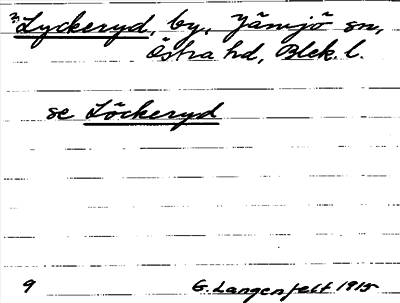 Lyckeryd, by, Jämjö sn,
Östra hd, Blek. l.
se Löckeryd
9 G. Langenfelt 1915